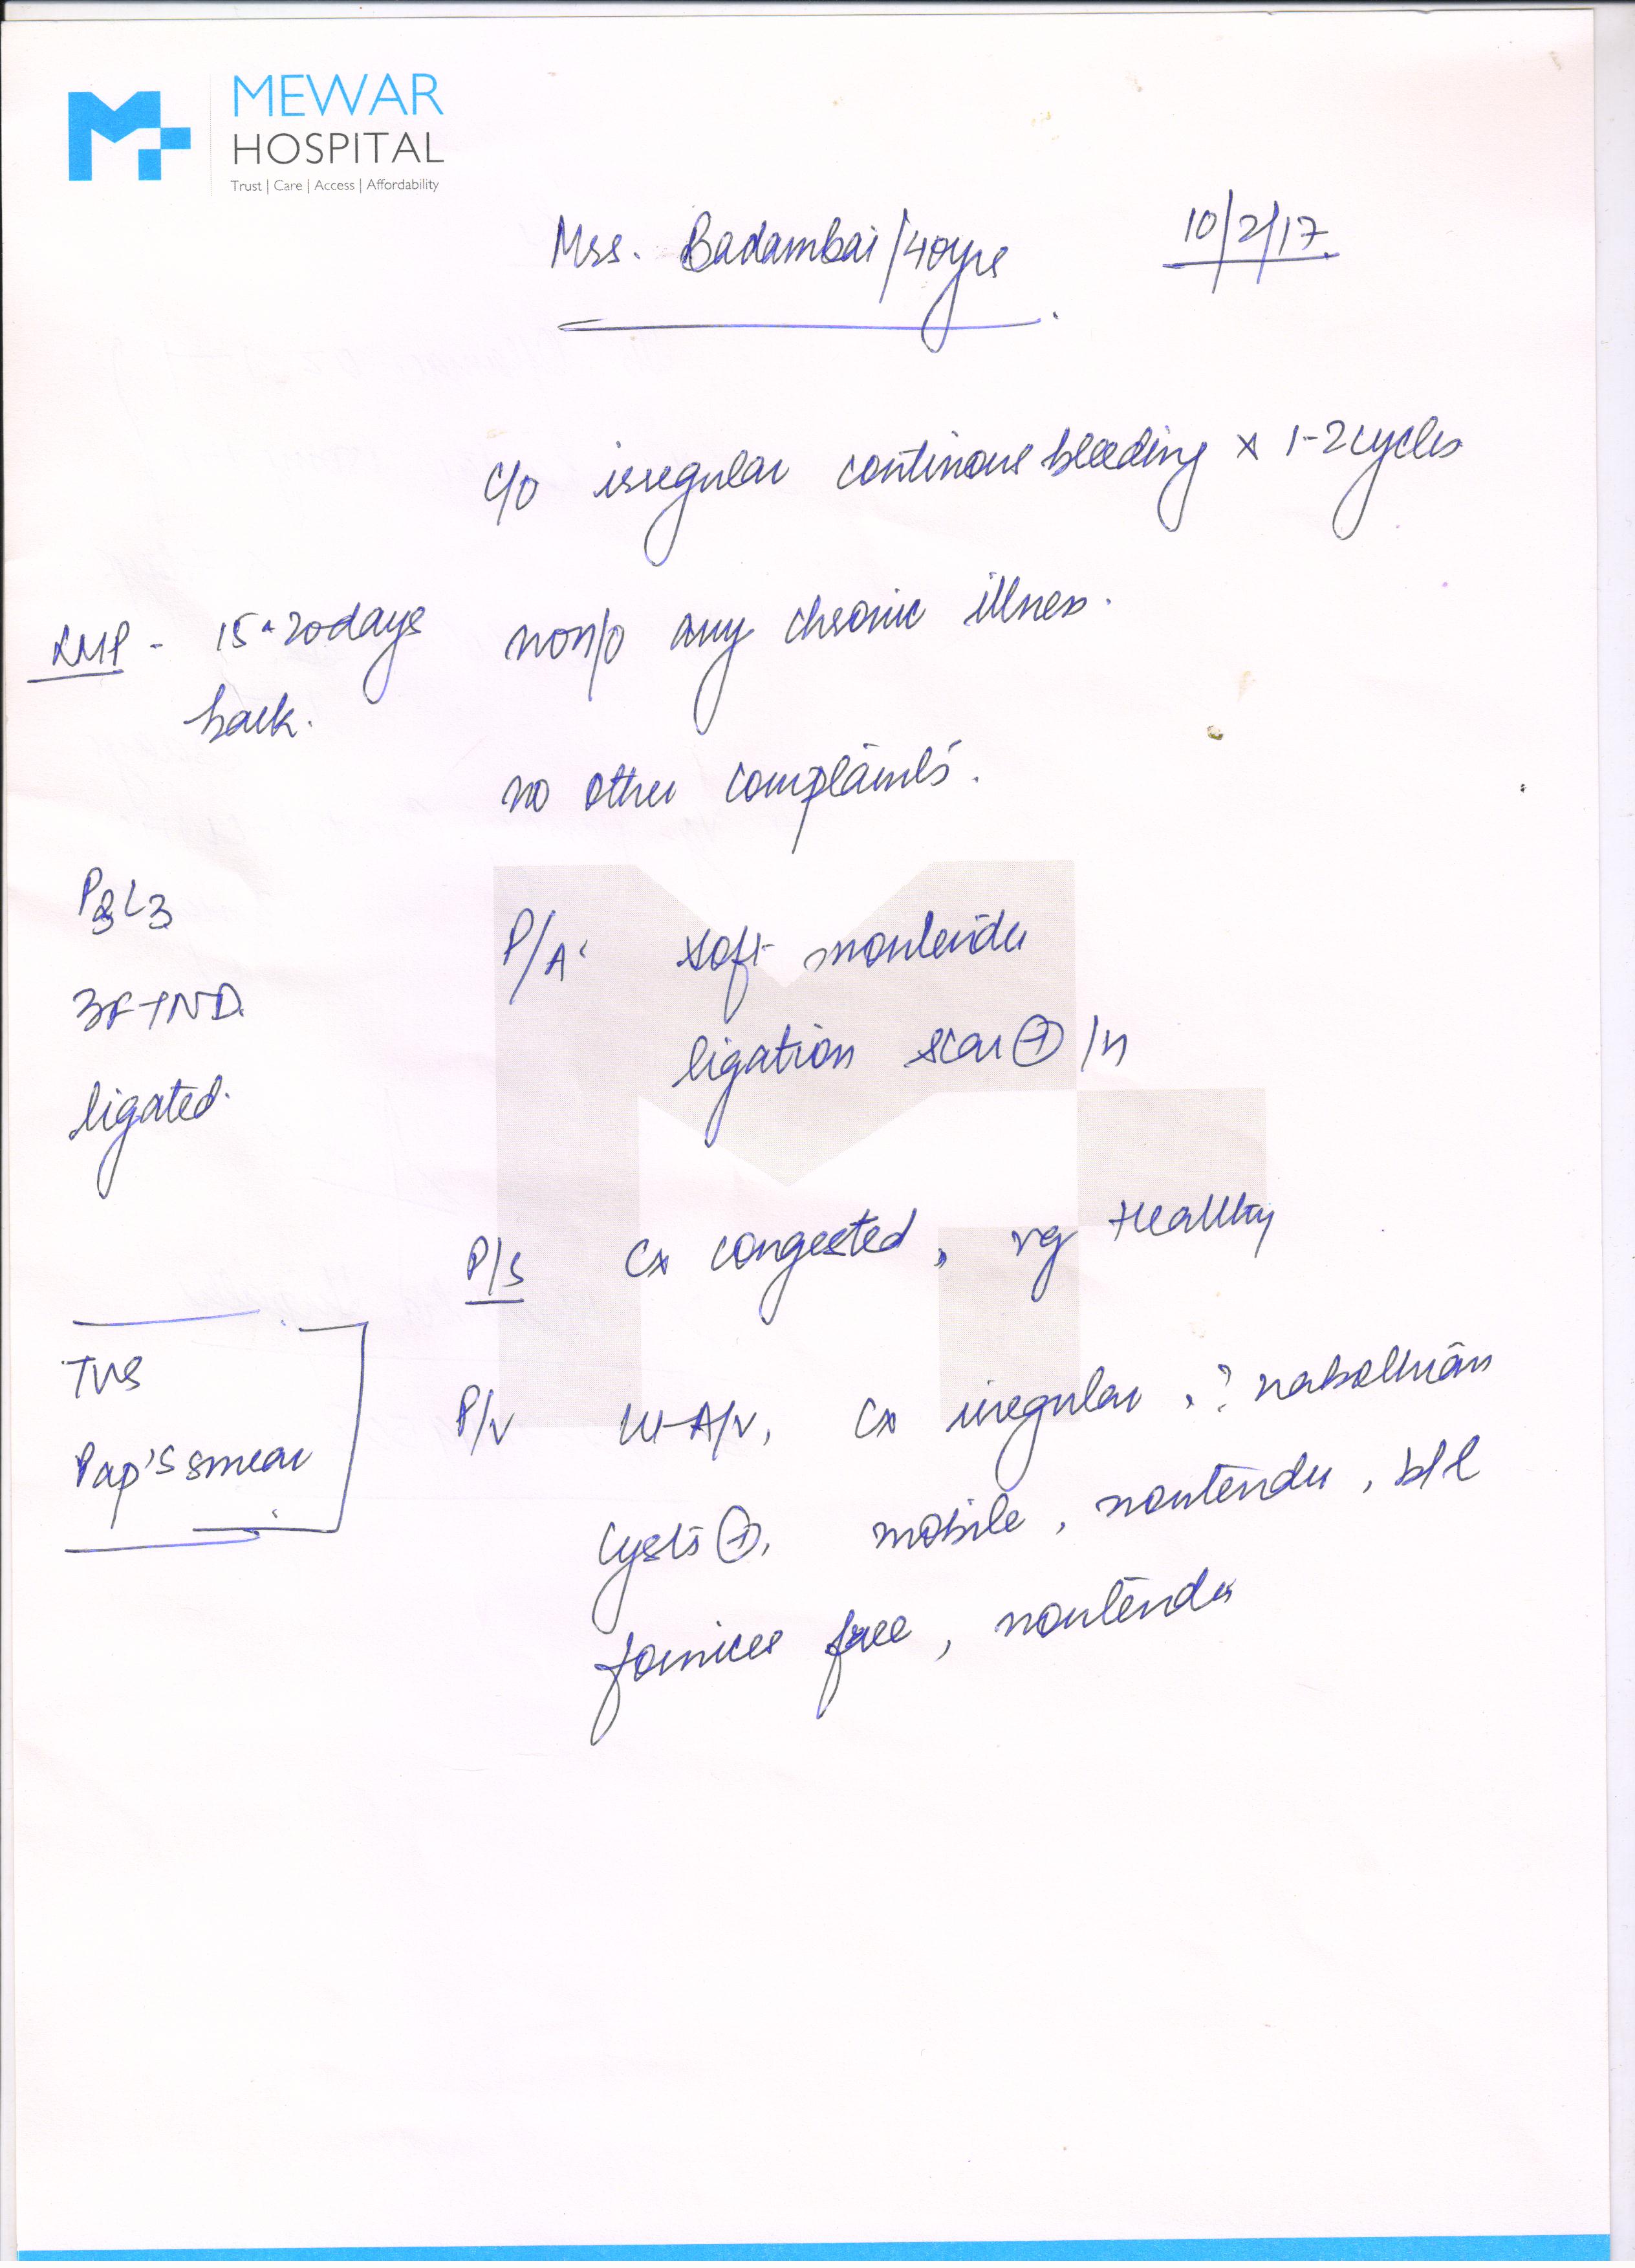 MEWAR
HOSPITAL
Trust | Care | Access | Affordability
Mrs. Badambai/40yrs
10/2/17.
c/o irregular continous bleeding x 1-2cycles
LMP - 15-20days
back.
no h/o any chronic illness.
no other complaints.
P3L3
3FTND.
ligated.
P/A: soft nontender
ligation scar ⊕ /n
P/S Cx congested, vg Healthy
TVS
Pap's smear
P/V Ut-A/v, Cx irregular, ? nabothian
cysts ⊕, mobile, nontender, b/l
fornices free, nontender